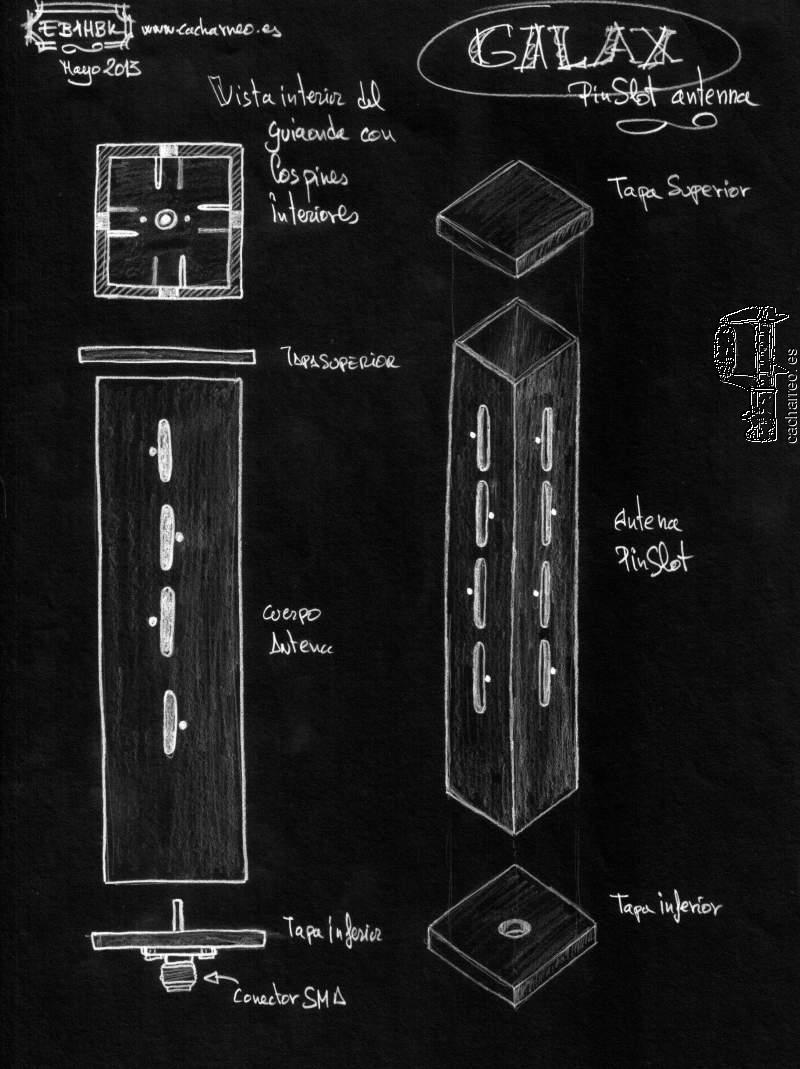 EB1HBK
www.cacharreo.es
Mayo 2013
GALAX
PinSlot antenna
Vista interior del
guiaonda con
los pines
interiores
Tapa Superior
TAPA SUPERIOR
cacharreo.es
Antena
PinSlot
Cuerpo
Antena
Tapa inferior
Tapa inferior
Conector SMA